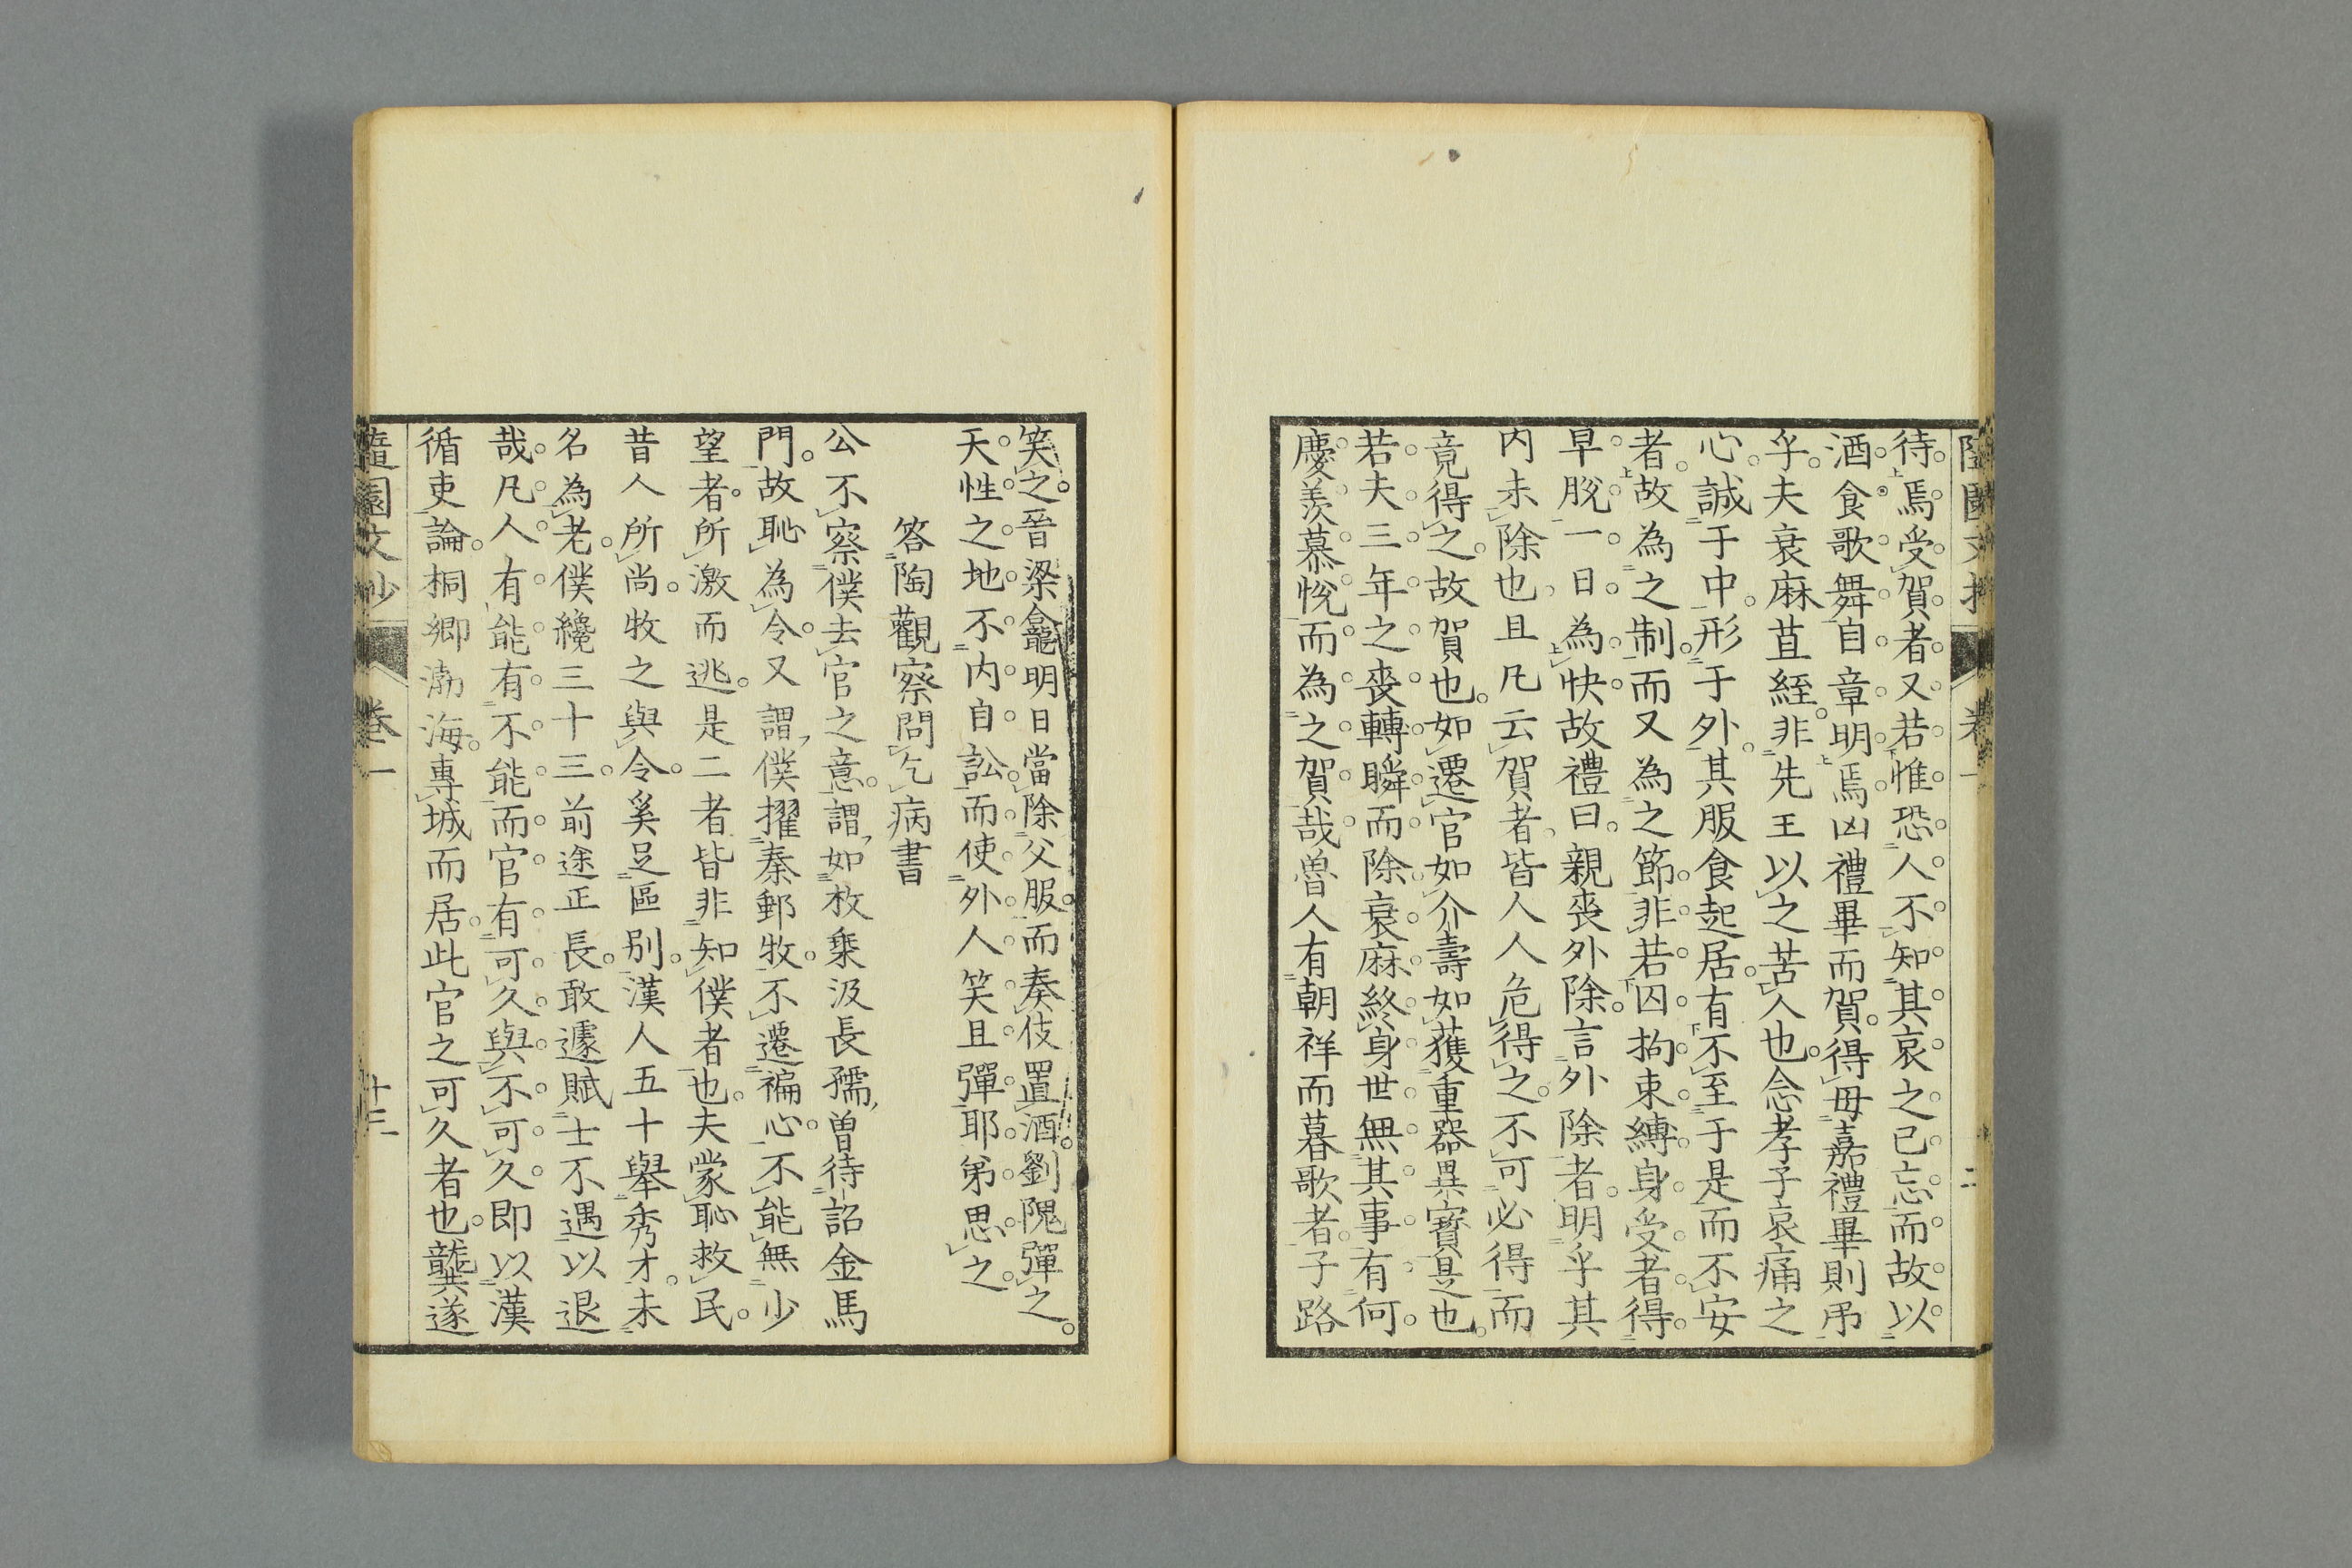 待焉受賀者又若惟恐人不知其哀之已忘而故以
酒食歌舞自章明焉凶禮畢而賀得毋嘉禮畢則吊
乎夫衰麻苴絰非先王以之苦人也念孝子哀痛之
心誠于中形于外其服食起居有不至于是而不安
者故為之制而又為之節非若囚拘束縛身受者得
早脫一日為快故禮曰親喪外除言外除者明乎其
内未除也且凡云賀者皆人人危得之不可必得而
竟得之故賀也如遷官如介壽如獲重器異寳是也
若夫三年之喪轉瞬而除衰麻終身世無其事有何
慶羨慕悅而為之賀哉曾人有朝祥而暮歌者子路
笑之晉梁龕明日當除父服而奏伎置酒劉隗彈之
天性之地不内自訟而使外人笑且彈耶弟思之
答陶觀察問乞病書
公不察僕去官之意謂如枚乗汲長孺曾待詔金馬
門故恥為令又謂僕擢秦郵牧不遷褊心不能無少
望者所激而逃是二者皆非知僕者也夫蒙恥救民
昔人所尚牧之與令奚足區别漢人五十舉秀才未
名為老僕纔三十三前途正長敢遽賦士不遇以退
哉凡人有能有不能而官有可久與不可久即以漢
循吏論桐鄉渤海專城而居此官之可久者也龔遂
隨園文抄 卷一 十二